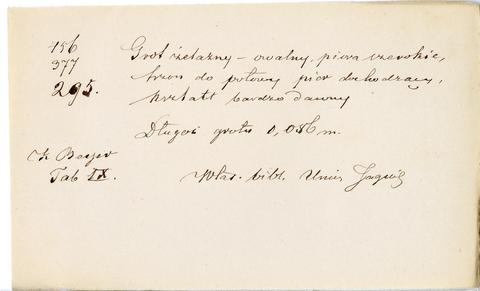 156
377
295.
Grot żelazny – owalny, pióra szerokie,
trzon do połowy piór dochodzący,
kształt bardzo dawny
Długość grotu 0,056 m.
K. Beyer
Tab IX.
Włas. bibl. Uniw. Jagiell